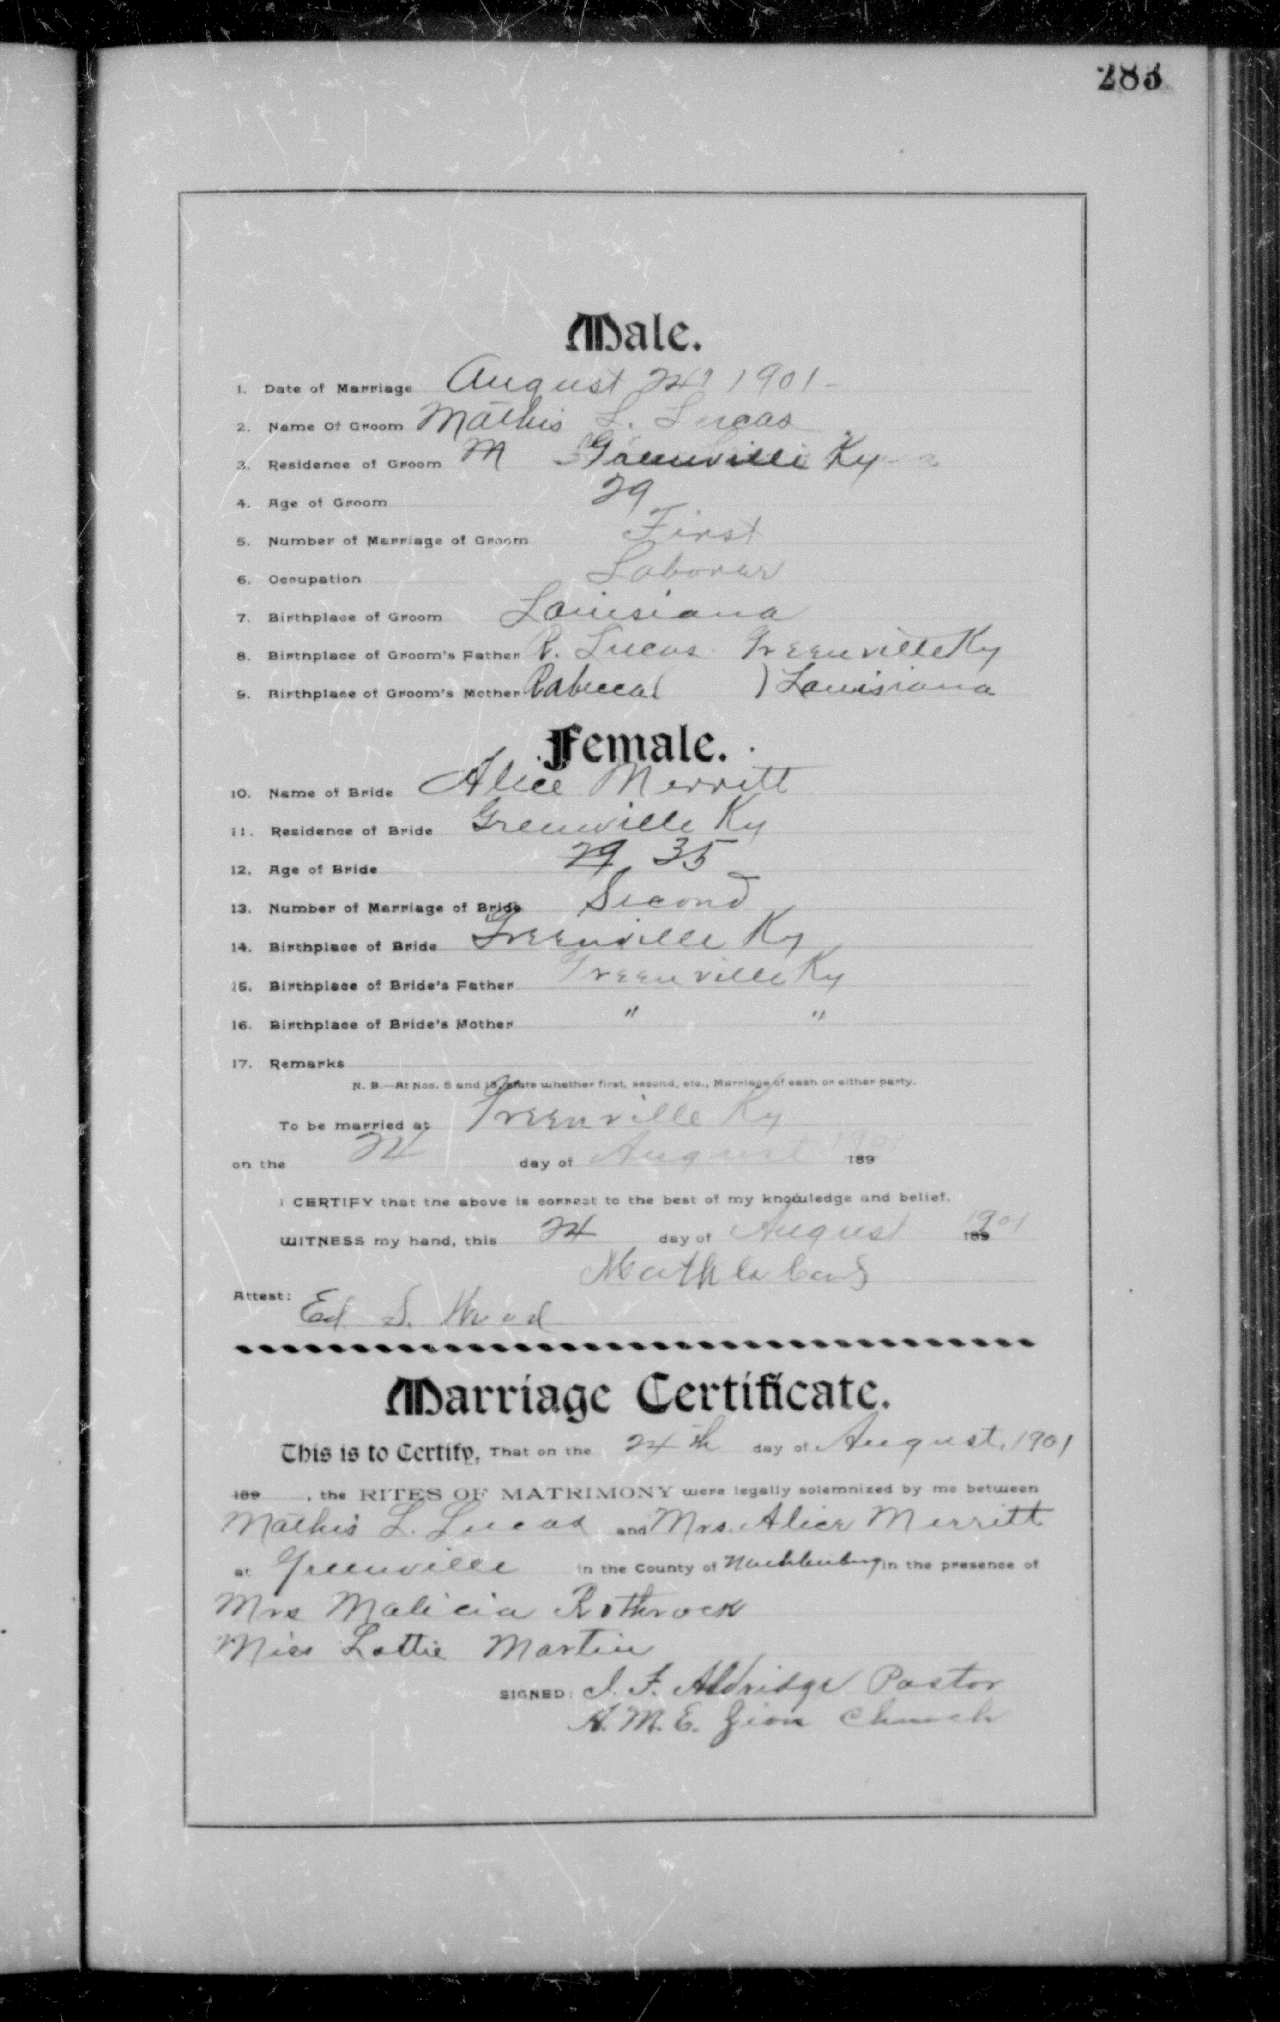 283
Male.
1. Date of Marriage August 24 1901
2. Name Of Groom Mathis L. Lucas
3. Residence of Groom M Greenville Ky
4. Age of Groom 29
5. Number of Marriage of Groom First
6. Occupation Laborer
7. Birthplace of Groom Louisiana
8. Birthplace of Groom's Father R. Lucas Greenville Ky
9. Birthplace of Groom's Mother Rabecca ( ) Louisiana
Female.
10. Name of Bride Alice Merritt
11. Residence of Bride Greenville Ky
12. Age of Bride 29 35
13. Number of Marriage of Bride Second
14. Birthplace of Bride Greenville Ky
15. Birthplace of Bride's Father Greenville Ky
16. Birthplace of Bride's Mother " "
17. Remarks
N. B.—At Nos. 5 and 13, state whether first, second, etc., Marriage of each or either party.
To be married at Greenville Ky
on the 24 day of August 1901 189
I CERTIFY that the above is correct to the best of my knowledge and belief.
WITNESS my hand, this 24 day of August 1901 189
Attest: Ed S. Wood
Marriage Certificate.
This is to Certify, That on the 24th day of August, 1901
189 , the RITES OF MATRIMONY were legally solemnized by me between
Mathis L. Lucas and Mrs. Alice Merritt
at Greenville in the County of Muehlenburg in the presence of
Mrs Malicia Rothrock
Miss Lottie Martin
SIGNED: J. F. Aldridge Pastor
A. M. E. Zion Church